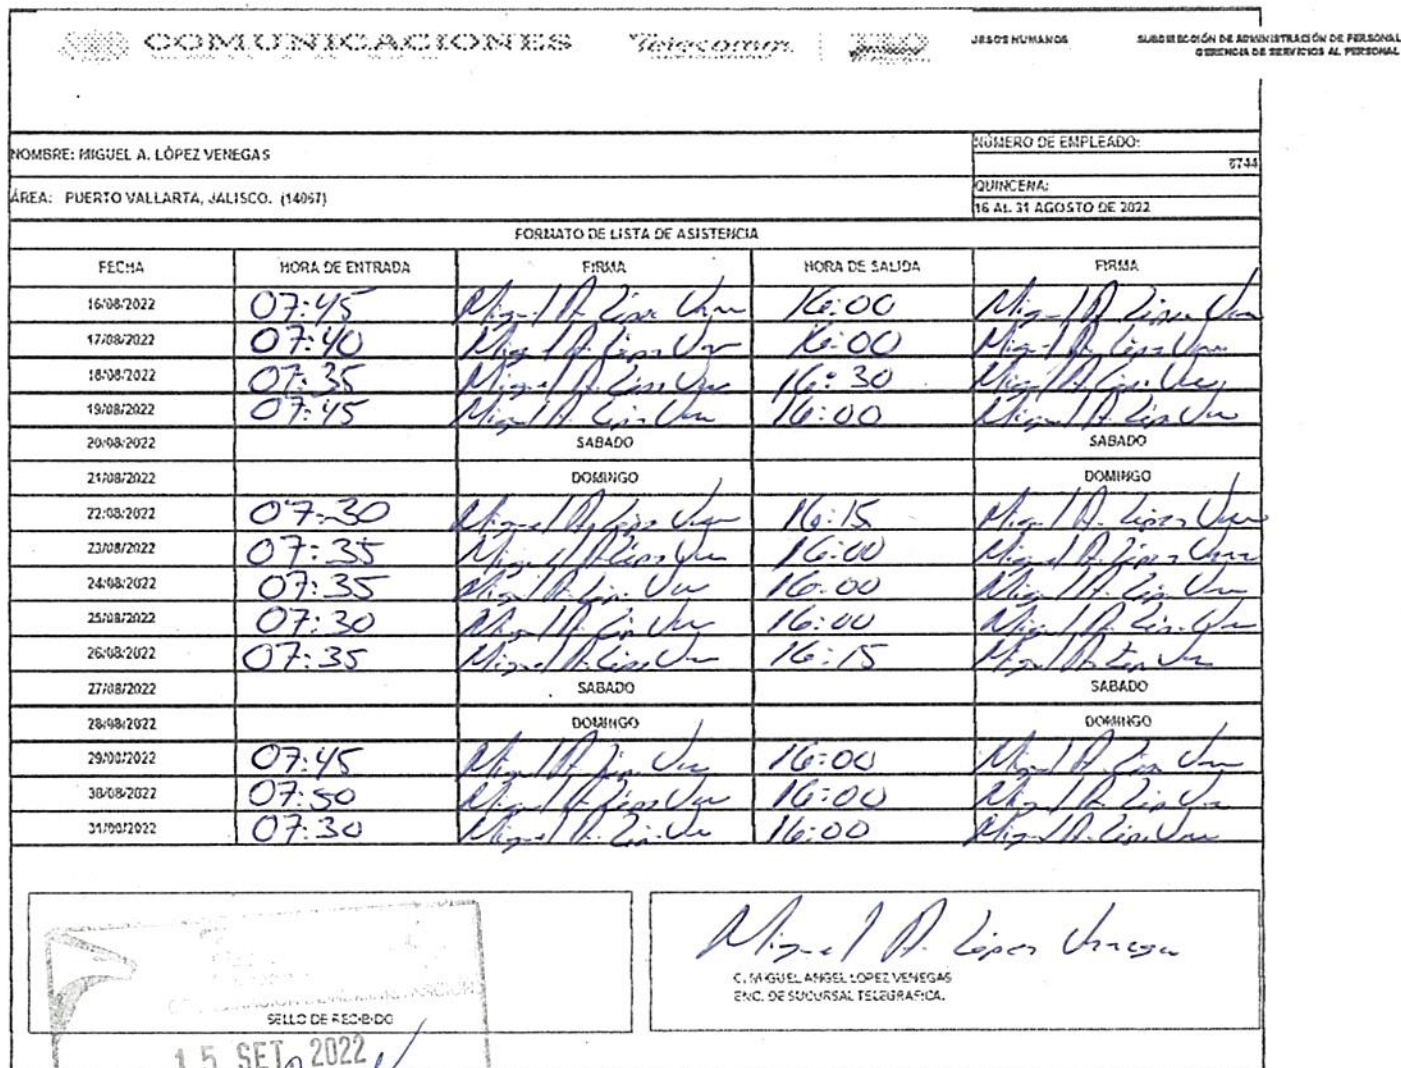 COMUNICACIONES Telecomm
SUBDIRECCIÓN DE ADMINISTRACIÓN DE PERSONAL
GERENCIA DE SERVICIOS AL PERSONAL
NOMBRE: MIGUEL A. LÓPEZ VENEGAS
NÚMERO DE EMPLEADO:
6744
ÁREA: PUERTO VALLARTA, JALISCO. (14067)
QUINCENA:
16 AL 31 AGOSTO DE 2022
FORMATO DE LISTA DE ASISTENCIA
FECHA HORA DE ENTRADA FIRMA HORA DE SALIDA FIRMA
16/08/2022 07:45 Miguel A. López 16:00 Miguel A. López
17/08/2022 07:40 Miguel A. López 16:00 Miguel A. López
18/08/2022 07:35 Miguel A. López 16:30 Miguel A. López
19/08/2022 07:45 Miguel A. López 16:00 Miguel A. López
20/08/2022 SABADO SABADO
21/08/2022 DOMINGO DOMINGO
22/08/2022 07:30 Miguel A. López 16:15 Miguel A. López
23/08/2022 07:35 Miguel A. López 16:00 Miguel A. López
24/08/2022 07:35 Miguel A. López 16:00 Miguel A. López
25/08/2022 07:30 Miguel A. López 16:00 Miguel A. López
26/08/2022 07:35 Miguel A. López 16:15 Miguel A. López
27/08/2022 SABADO SABADO
28/08/2022 DOMINGO DOMINGO
29/08/2022 07:45 Miguel A. López 16:00 Miguel A. López
30/08/2022 07:50 Miguel A. López 16:00 Miguel A. López
31/08/2022 07:30 Miguel A. López 16:00 Miguel A. López
Miguel A. López Venegas
C. MIGUEL ANGEL LOPEZ VENEGAS
ENC. DE SUCURSAL TELEGRAFICA.
SELLO DE RECIBIDO
15 SET. 2022